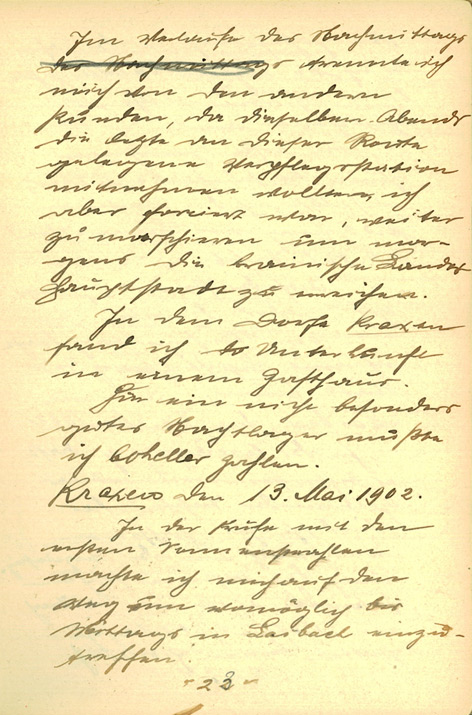 Im Verlaufe des Nachmittags
des Nachmittags trennte ich
mich von den andern
Kunden, da dieselben Abends
die letzte an dieser Route
gelegene Verpflegsstation
mitnehmen wollten, ich
aber forciert war, weiter
zu marschieren um mor-
gens die krainische Landes
hauptstadt zu erreichen.
In dem Dorfe Kraxen
fand ich Unterkunft
in einem Gasthaus.
Für ein nicht besonders
gutes Nachtlager mußte
ich 60 heller zahlen.
Kraxen den 13. Mai 1902.
In der Frühe mit den
ersten Sonnenstrahlen
machte ich mich auf den
Weg um womöglich bis
Mittags in Laibach einzu-
treffen.
- 23 -